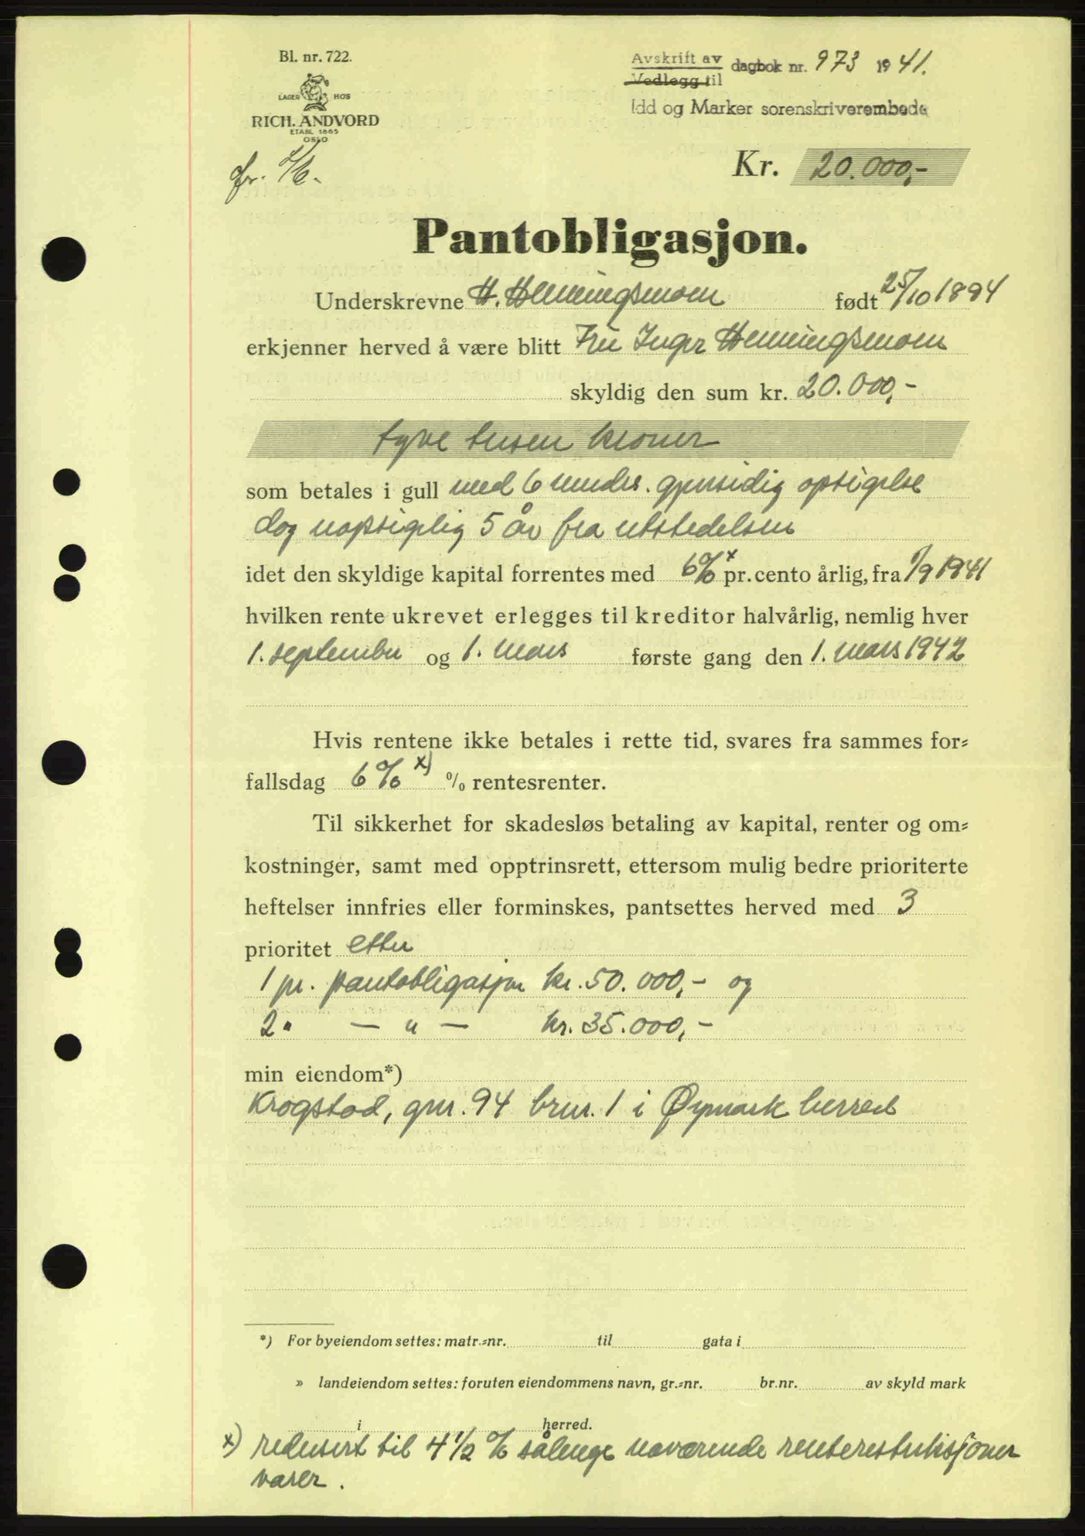 Bl. nr. 722.
LAGER HOS
RICH. ANDVORD
ETABL 1865
OSLO
Avskrift av
Vedlegg til
dagbok nr. 973 1941.
Idd og Marker sorenskriverembede
Kr. 20.000,-
Pantobligasjon.
Underskrevne H. Henningsmoen født 25/10 1894
erkjenner herved å være blitt Fru Inger Henningsmoen
skyldig den sum kr. 20.000,-
tyve tusen kroner
som betales i gull med 6 mndrs. gjensidig opsigelse
dog uopsigelig 5 år fra utstedelsen
idet den skyldige kapital forrentes med 6% x pr. cento årlig, fra 1/9 1941
hvilken rente ukrevet erlegges til kreditor halvårlig, nemlig hver
1. september og 1. mars første gang den 1. mars 1942
Hvis rentene ikke betales i rette tid, svares fra sammes for=
fallsdag 6% x) % rentesrenter.
Til sikkerhet for skadesløs betaling av kapital, renter og om=
kostninger, samt med opptrinsrett, ettersom mulig bedre prioriterte
heftelser innfries eller forminskes, pantsettes herved med 3
prioritet etter
1 pr. pantobligasjon kr. 50.000,- og
2 " — " — kr. 35.000,-
min eiendom*)
Krogstad, gnr. 94 brnr. 1 i Øymark herred
*) For byeiendom settes: matr.=nr. til gata i
» landeiendom settes: foruten eiendommens navn, gr.=nr. br.nr. av skyld mark
i herred.
x) redusert til 4 1/2 % sålenge nuværende renterestriksjoner
varer.